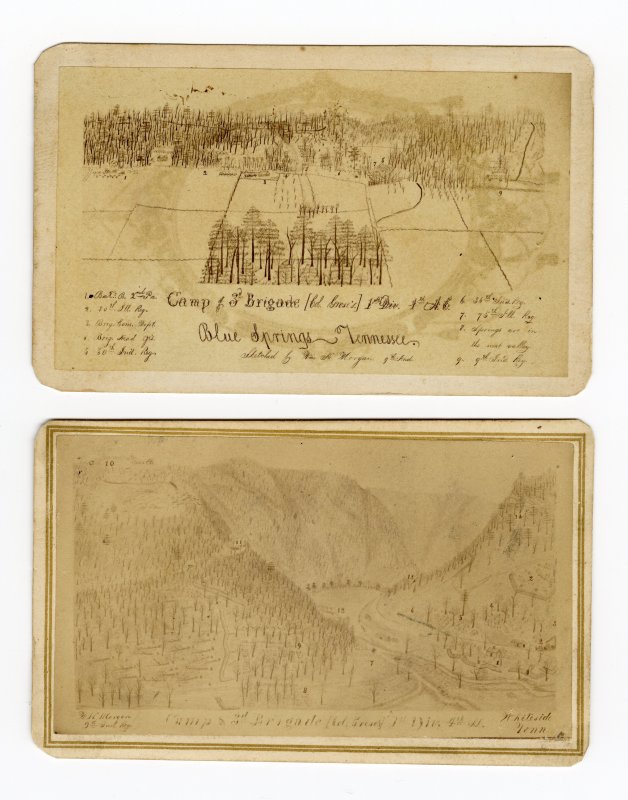 1. Bat. B. 2nd Pa.
2. 80th Ill. Reg.
3. Brig. Comc. Dept.
4. Brig. Head qrs.
5. 80th Ind. Reg.
Camp of 3d Brigade [Col. Grose's] 1st Div. 4th A.C.
Blue Springs Tennessee.
sketched by W. H. Morgan 9th Ind
6. 36th Ind. Reg.
7. 75th Ill. Reg.
8. Springs are in
the next valley
9. 9th Ind. Reg.
10
W. H. Morgan
9th Ind Reg
Camp 3d Brigade [Col. Grose's] 1st Div. 4th A.
Whiteside
Tenn